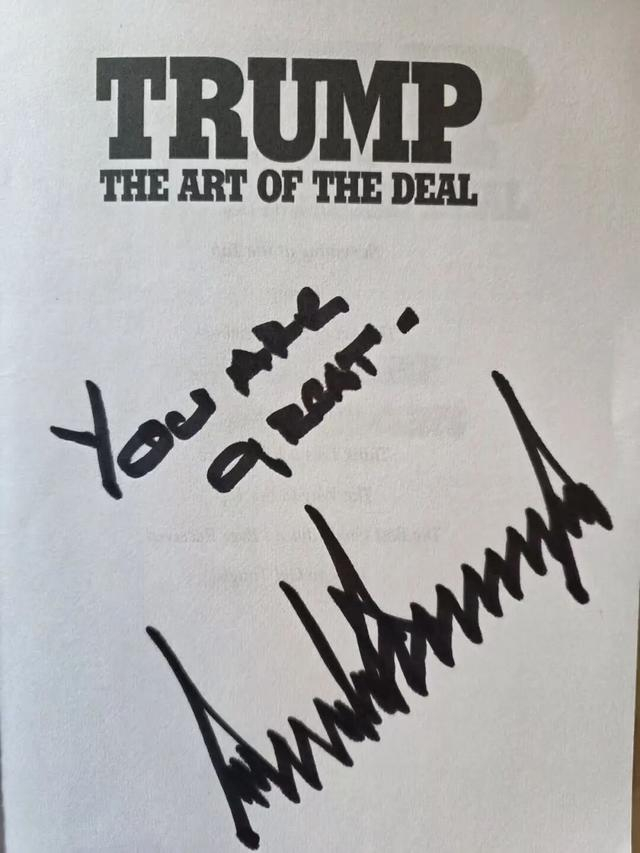 TRUMP
THE ART OF THE DEAL
YOU ARE
GREAT.